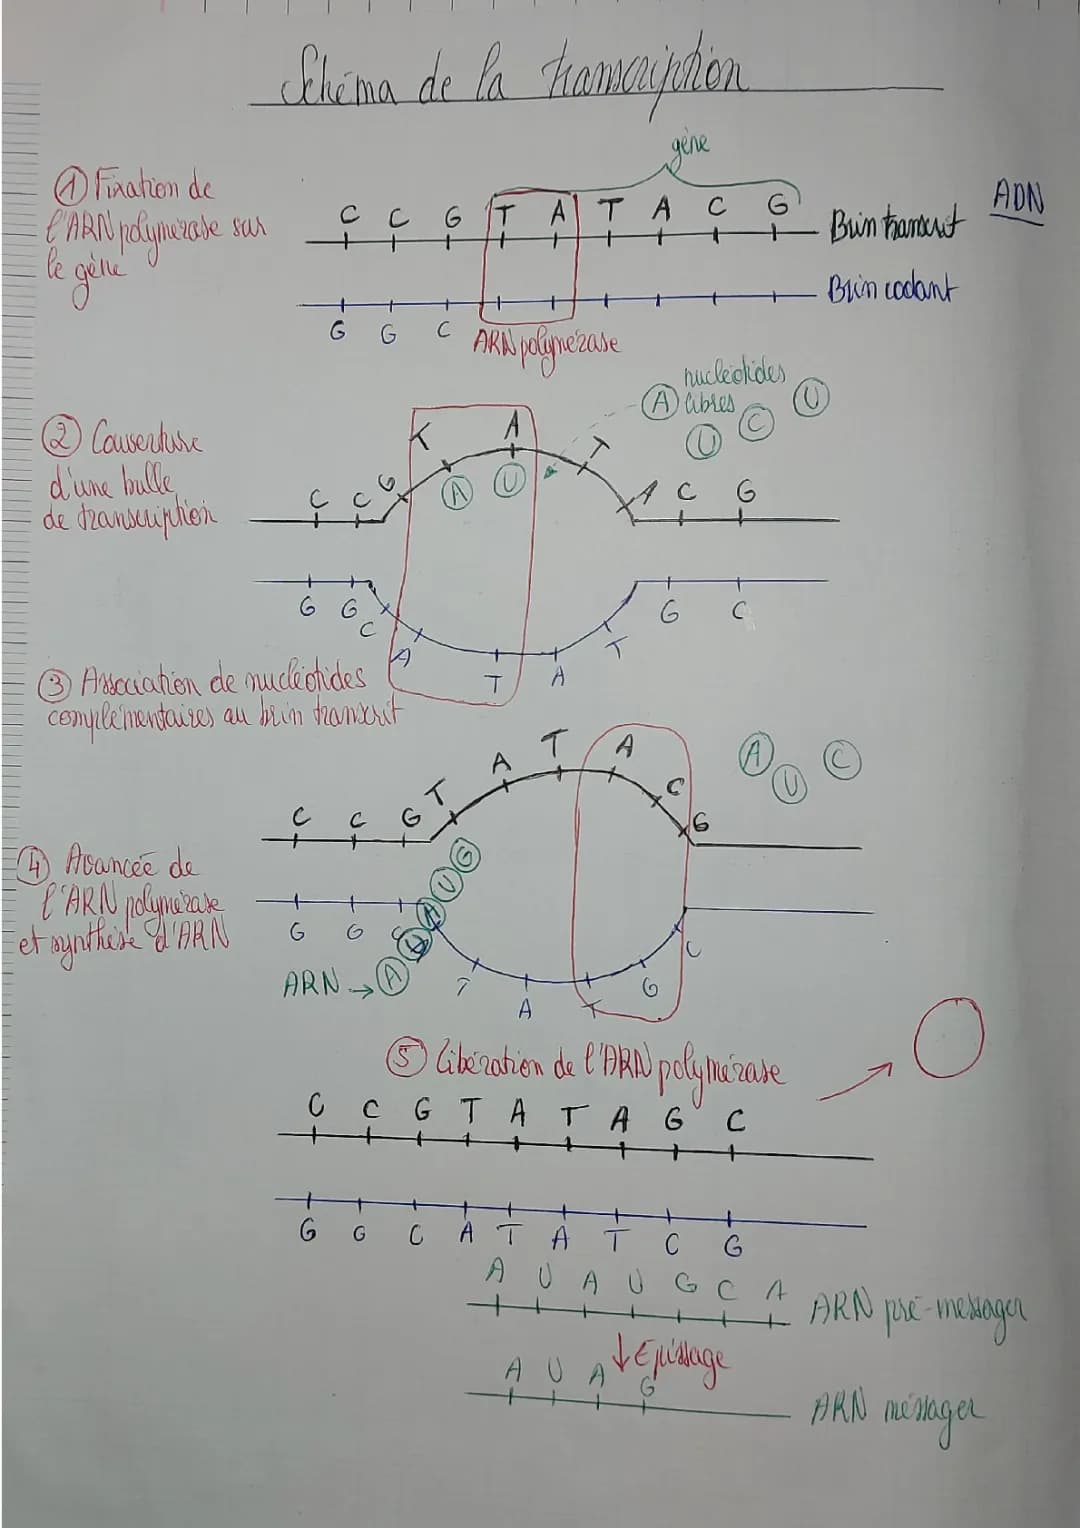 Schéma de la transcription
gène
① Fixation de
l'ARN polymérase sur
le gène
C C G T A T A C G
Brin transcrit
ADN
Brin codant
G G C
ARN polymérase
nucléotides
A libres
U C U
② L'ouverture
d'une bulle
de transcription
C C G T A T A C G
A U
G G C A T A T G C
③ Association de nucléotides
complémentaires au brin transcrit
C C G T A T A C G
A U C
④ Avancée de
l'ARN polymérase
et synthèse d'ARN
A U A U G
G G C T A T G C
ARN →
⑤ Libération de l'ARN polymérase
C C G T A T A G C
G G C A T A T C G
A U A U G C A
ARN pré-messager
↓ Epissage
A U A G
ARN messager